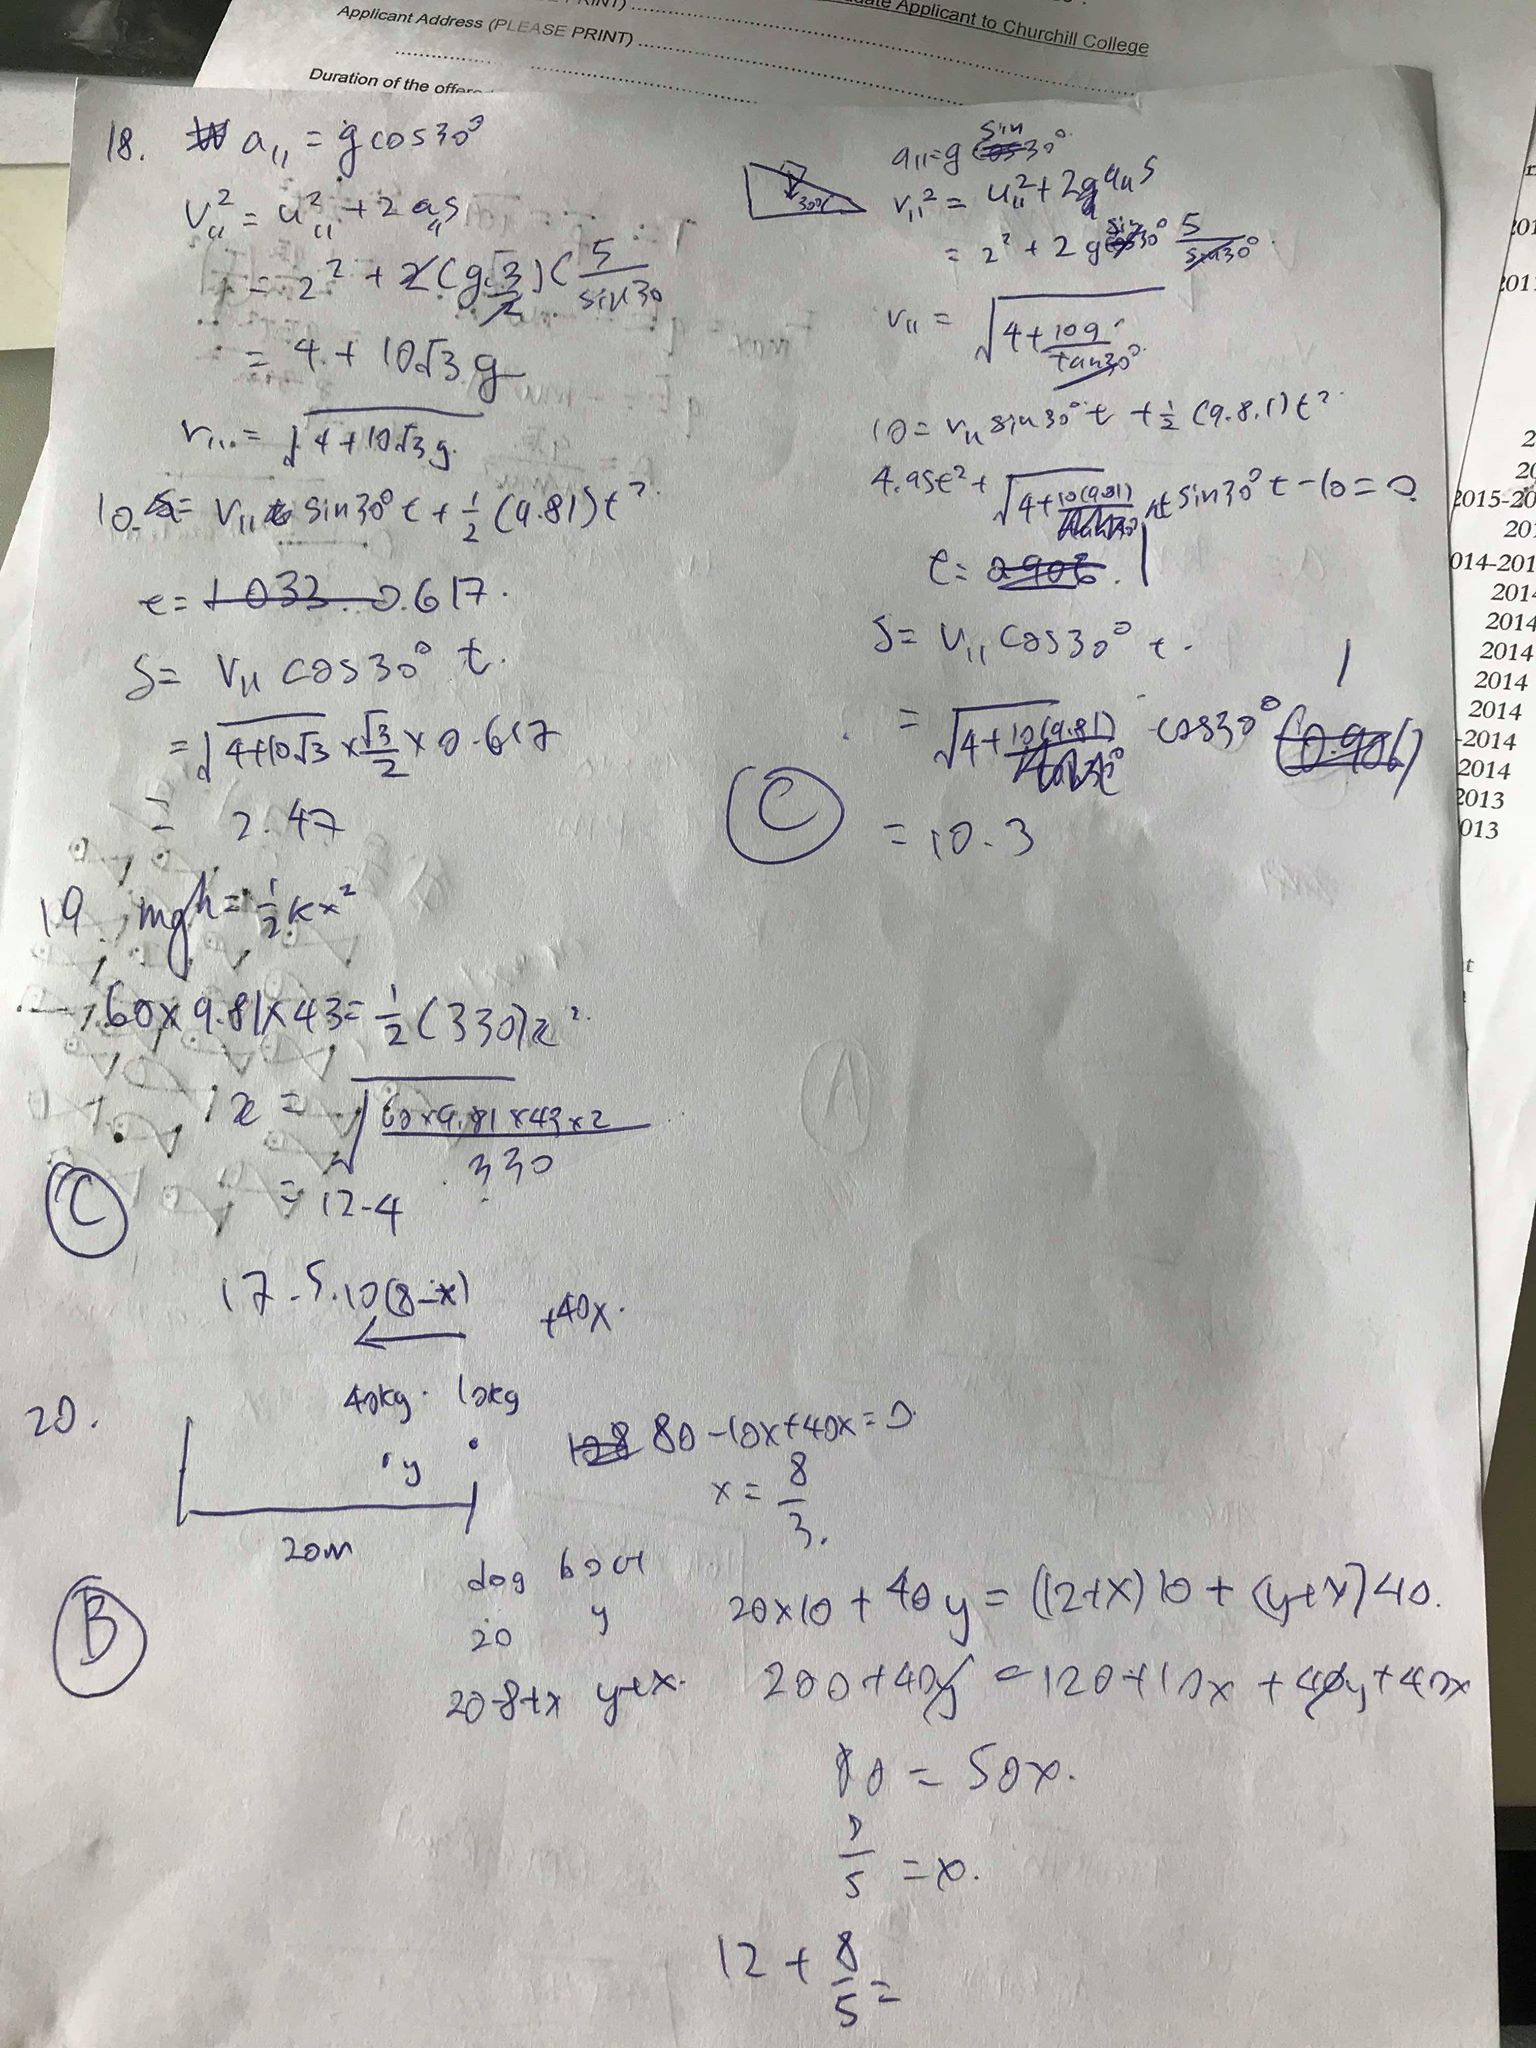 Applicant to Churchill College
Applicant Address (PLEASE PRINT)
Duration of the
18. a₁₁ = g cos30°
v₁₁² = u₁₁² + 2 a₁₁s
= 2² + 2(g√3/2)(5/sin30
= 4 + 10√3 g
v₁₁ = √4+10√3g
10 = v₁₁ sin30° t + 1/2 (9.81)t²
t = 1.033 0.617.
s = v₁₁ cos30° t.
= √4+10√3 × √3/2 × 0.617
= 2.47
sin
a₁₁=g cos30°
30°
v₁₁² = u₁₁² + 2g a₁₁ s
= 2² + 2 g sin30° 5/sin30°
v₁₁ = √4+10g/tan30°
10 = v₁₁ sin30° t + 1/2 (9.81)t²
4.95t² + √4+10(9.81) sin30° t - 10 = 0
t = 0.906. 1
s = v₁₁ cos30° t.
= √4+10(9.81) cos30° (0.906) 1
C
= 10.3
19. mgh = 1/2 kx²
60×9.81×43 = 1/2 (330)x²
x = √60×9.81×43×2/330
= 12.4
C
17.5.10(8-x) +40x.
20.
40kg. 10kg
y
20m
80-10x+40x=0
x = 8/3.
B
dog boat
20 y
20-8+x y+x.
20×10 + 40y = (12+x)10 + (y+x)40.
200+40y = 120+10x + 40y + 40x
80 = 50x.
8/5 = x.
12 + 8/5 =
2015-20
014-201
2014
2014
2014
2014
2014
-2014
2014
2013
013